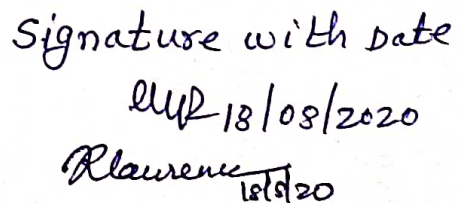 Signature with Date
18/08/2020
RLaurence
18/8/20